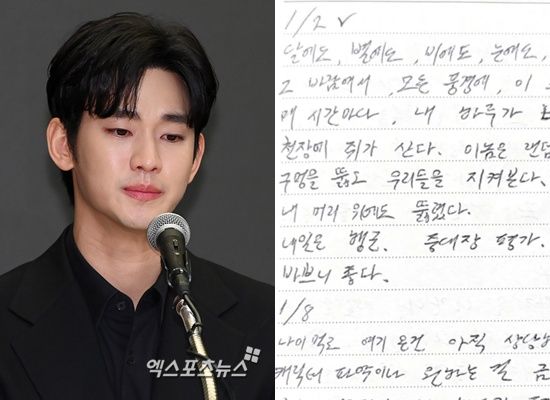 엑스포츠뉴스
1/2 ✓
달에도, 별에도, 비에도, 눈에도,
그 바람에서, 모든 풍경에, 이
매 시간마다, 내 하루가
천장에 쥐가 산다. 이놈은 랜덤
구멍을 뚫고 우리들을 지켜본다.
내 머리 위에도 뚫렸다.
내일은 행군. 중대장 평가.
바쁘니 좋다.
1/8
나이 먹고 여기 온건 아직
캐릭터 파악이나 원하는 걸 금